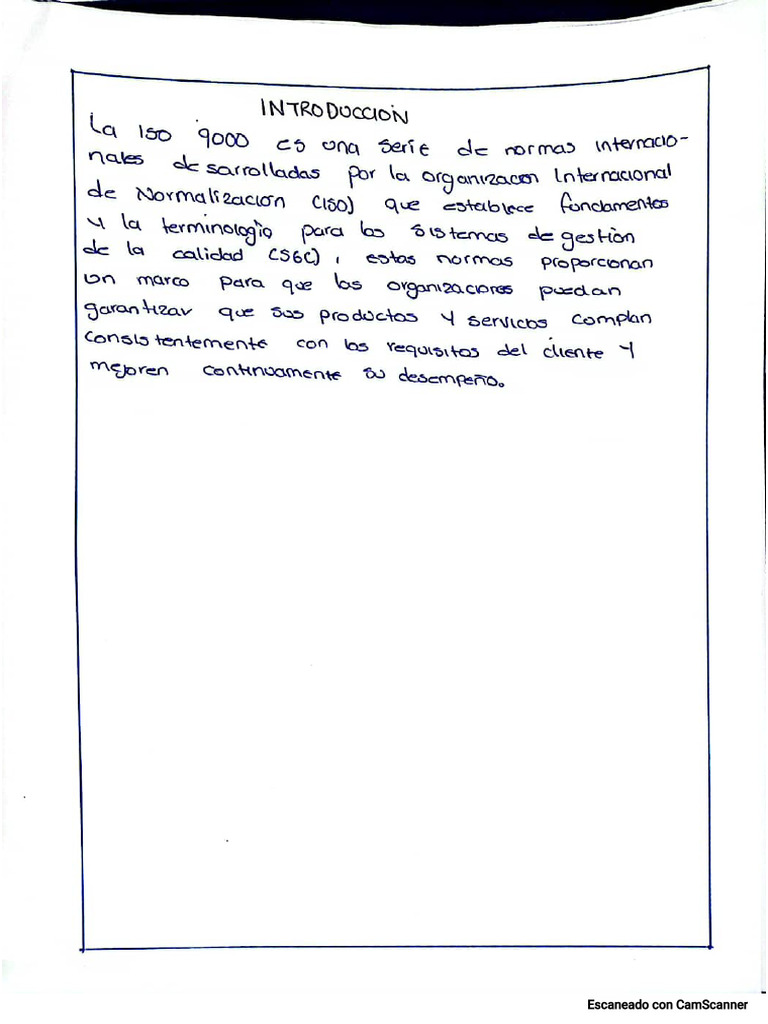 INTRODUCCIÓN
La ISO 9000 es una serie de normas internacio-
nales desarrolladas por la organizacon Internacional
de Normalización (ISO) que establece fundamentos
y la terminología para los sistemas de gestión
de la calidad (SGC), estas normas proporcionan
un marco para que las organizaciones puedan
garantizar que sus productos y servicios cumplan
consistentemente con los requisitos del cliente y
mejoren continuamente su desempeño.
Escaneado con CamScanner